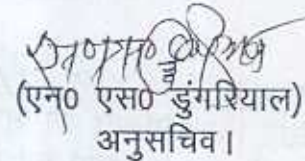 (एन0 एस0 डुंगरियाल)
अनुसचिव।